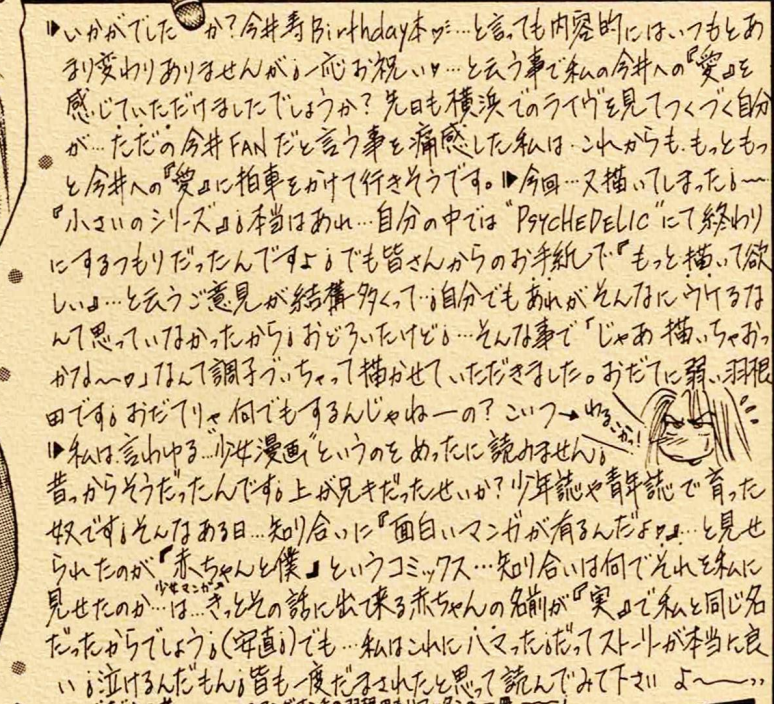 ▶いかがでしたか?今井寿Birthday本♡…と言っても内容的にはいつもとあ
まり変わりありませんが💧一応お祝い♥…と云う事で私の今井への『愛』を
感じていただけましたでしょうか?先日も横浜でのライヴを見てつくづく自分
が…ただの今井FANだと言う事を痛感した私は、これからも、もっともっ
と今井への『愛』に拍車をかけて行きそうです。▶今回…又描いてしまった💧〜
『小さいのシリーズ』💧本当はあれ…自分の中では"PSYCHEDELIC"にて終わり
にするつもりだったんですよ💧でも皆さんからのお手紙で『もっと描いて欲
しい』…と云うご意見が結構多くって💧自分でもあれがそんなにウケるな
んて思っていなかったから💧おどろいたけど💧…そんな事で「じゃあ描いちゃおっ
かな〜♡」なんて調子づいちゃって描かせていただきました。おだてに弱い羽根
田です💧おだてりゃ何でもするんじゃねーの?こいつ→
わるこかっ!
▶私は言わゆる"少女漫画"というのをめったに読みません💧
昔っからそうだったんです💧上が兄キだったせいか?少年誌や青年誌で育った
奴です💧そんなある日…知り合いに『面白いマンガが有るんだよ♡』…と見せ
られたのが『赤ちゃんと僕』というコミックス…知り合いは何でそれを私に
少女マンガ
見せたのか…は…きっとその話に出て来る赤ちゃんの名前が『実』で私と同じ名
だったからでしょう💧(安直💧)でも…私はこれにハマった💧だってストーリーが本当に良
い💧泣けるんだもん💧皆も一度だまされたと思って読んでみて下さいよ〜